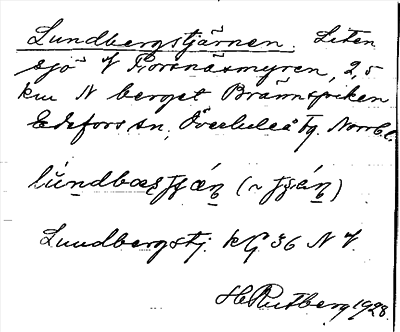 Lundbergstjärnen. Liten
sjö V Rörsnäsmyren, 2,5
km N berget Brännspiken
Edefors sn, Överluleå tg. Norrb.l.
Lundbergstj. kG 36 N V.
H Rutberg 1928.